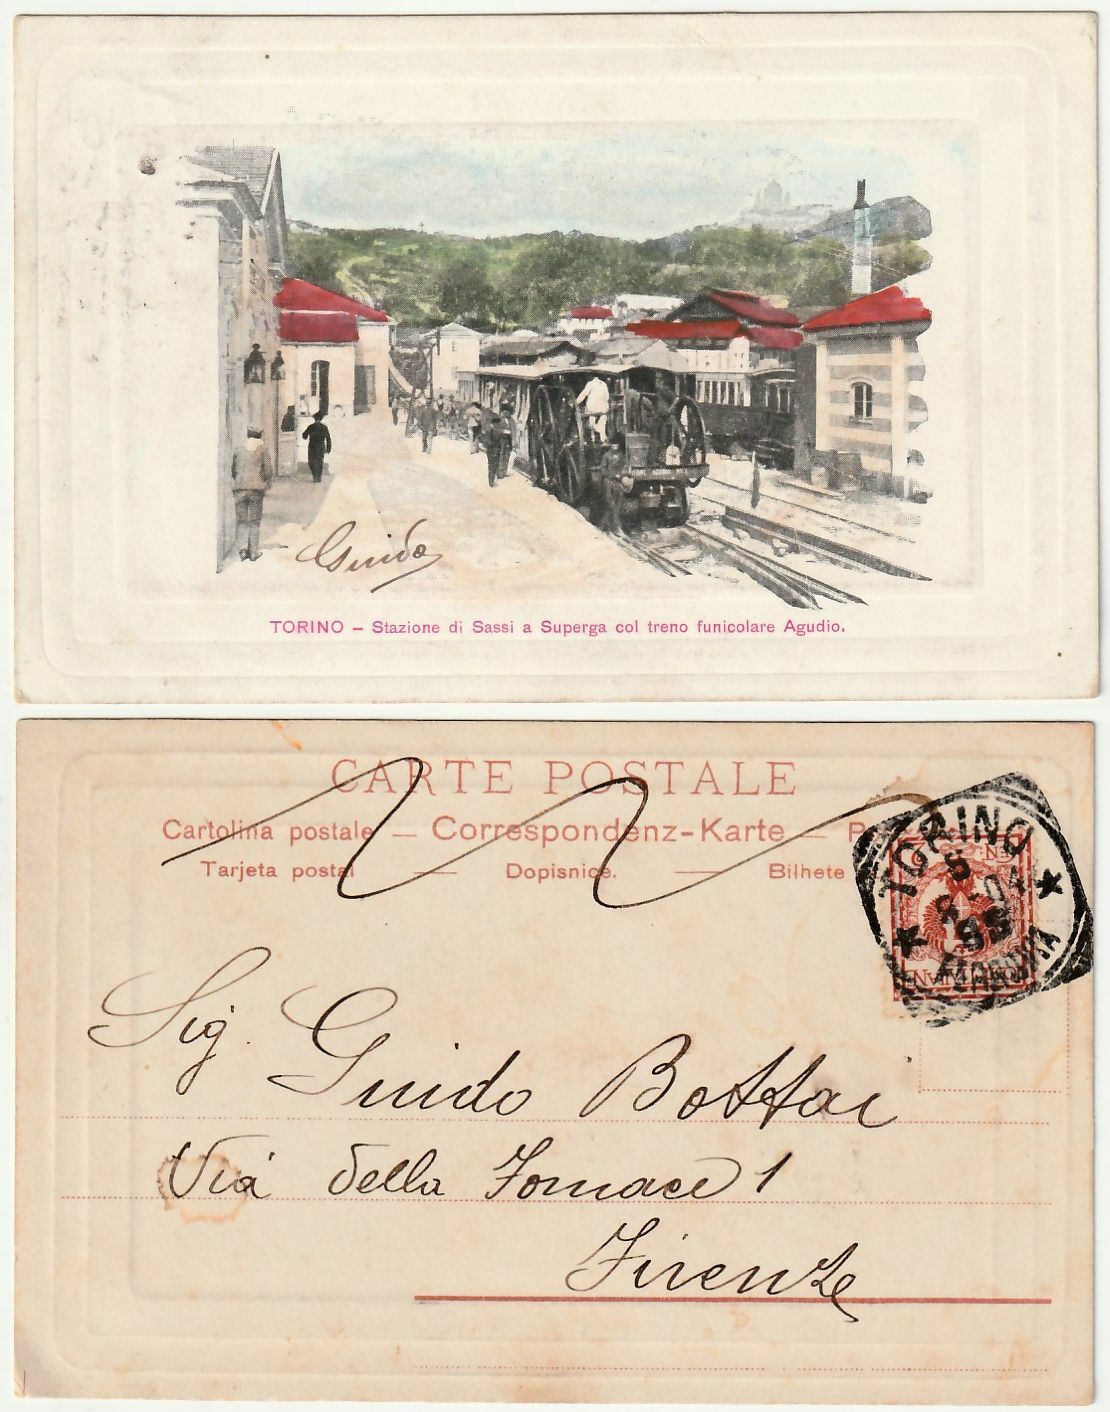 Guido
TORINO – Stazione di Sassi a Superga col treno funicolare Agudio.
CARTE POSTALE
Cartolina postale — Correspondenz-Karte — P
Tarjeta postal — Dopisnice. — Bilhete
TORINO
5
04
FERROVIA
Sig. Guido Bottai
Via della Fornace 1
Firenze